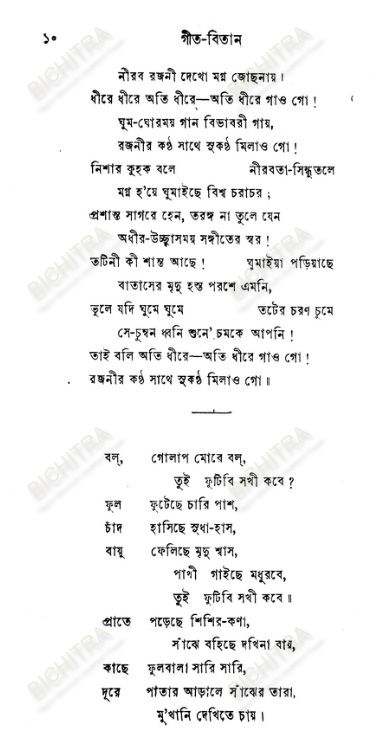 ১০ গীত-বিতান
নীরব রজনী দেখো মগ্ন জোছনায়।
ধীরে ধীরে অতি ধীরে—অতি ধীরে গাও গো!
ঘুম-ঘোরময় গান বিভাবরী গায়,
রজনীর কণ্ঠ সাথে সুকণ্ঠ মিলাও গো!
নিশার কুহক বলে নীরবতা-সিন্ধুতলে
মগ্ন হ'য়ে ঘুমাইছে বিশ্ব চরাচর;
প্রশান্ত সাগরে হেন, তরঙ্গ না তুলে যেন
অধীর-উচ্ছ্বাসময় সঙ্গীতের স্বর!
তটিনী কী শান্ত আছে! ঘুমাইয়া পড়িয়াছে
বাতাসের মৃদু হস্ত পরশে এমনি,
ভুলে যদি ঘুমে ঘুমে তটের চরণ চুমে
সে-চুম্বন ধ্বনি শুনে' চমকে আপনি!
তাই বলি অতি ধীরে—অতি ধীরে গাও গো!
রজনীর কণ্ঠ সাথে সুকণ্ঠ মিলাও গো॥
বল্, গোলাপ মোরে বল্,
তুই ফুটিবি সখী কবে?
ফুল ফুটেছে চারি পাশ,
চাঁদ হাসিছে সুধা-হাস,
বায়ু ফেলিছে মৃদু শ্বাস,
পাখী গাইছে মধুরবে,
তুই ফুটিবি সখী কবে॥
প্রাতে পড়েছে শিশির-কণা,
সাঁঝে বহিছে দখিনা বায়,
কাছে ফুলবালা সারি সারি,
দূরে পাতার আড়ালে সাঁঝের তারা,
মু'খানি দেখিতে চায়।
BICHITRA
BICHITRA
BICHITRA
BICHITRA
BICHITRA
BICHITRA